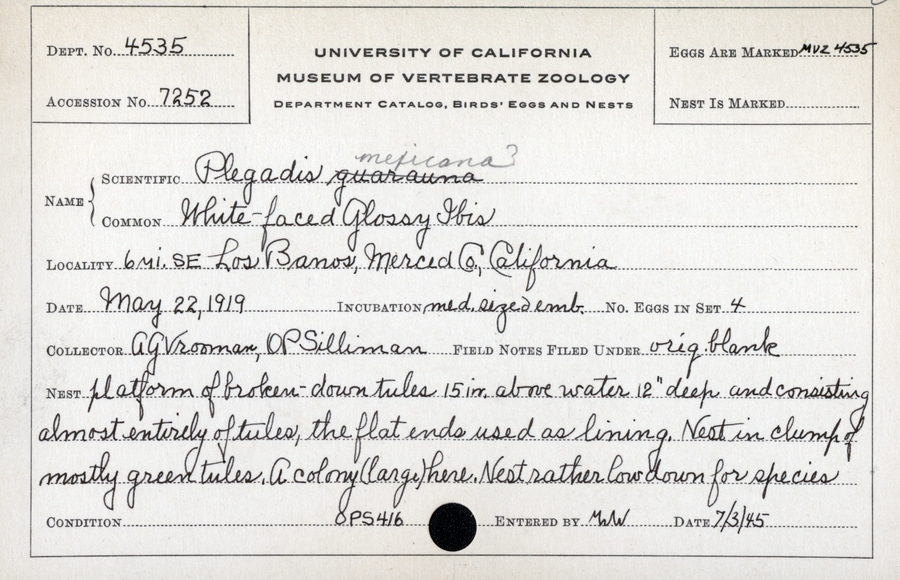 DEPT. NO. 4535
ACCESSION NO. 7252
UNIVERSITY OF CALIFORNIA
MUSEUM OF VERTEBRATE ZOOLOGY
DEPARTMENT CATALOG, BIRDS' EGGS AND NESTS
EGGS ARE MARKED MVZ 4535
NEST IS MARKED
mexicana?
NAME { SCIENTIFIC Plegadis guarauna
COMMON White-faced Glossy Ibis
LOCALITY 6 mi. SE Los Banos, Merced Co., California
DATE May 22, 1919 INCUBATION med. sized emb. NO. EGGS IN SET 4
COLLECTOR AG Vrooman, OP Silliman FIELD NOTES FILED UNDER orig. blank
NEST platform of broken-down tules 15 in. above water 12" deep and consisting
almost entirely of tules, the flat ends used as lining. Nest in clump of
mostly green tules. A colony (large) here. Nest rather low down for species
CONDITION OPS 416 ENTERED BY DATE 7/3/45